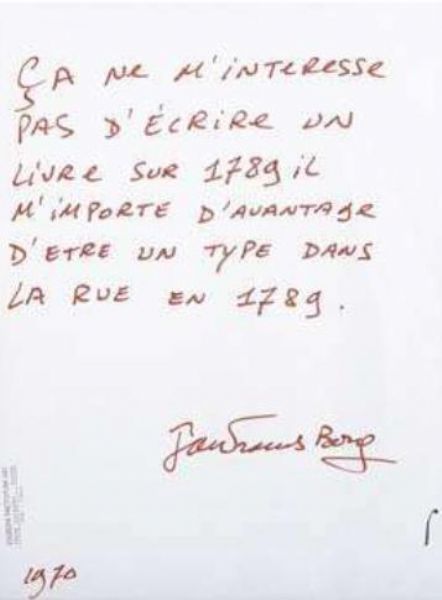 ÇA NE M'INTERESSE
PAS D'ÉCRIRE UN
LIVRE SUR 1789 iL
M'IMPORTE D'AVANTAGE
D'ETRE UN TYPE DANS
LA RUE EN 1789.
1970